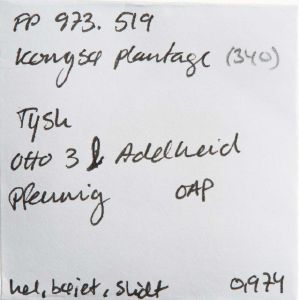 FP 973.519
Kongsø plantage (340)
Tysk
Otto 3 & Adelheid
Pfennig OAP
hel, bøjet, slidt 0,974